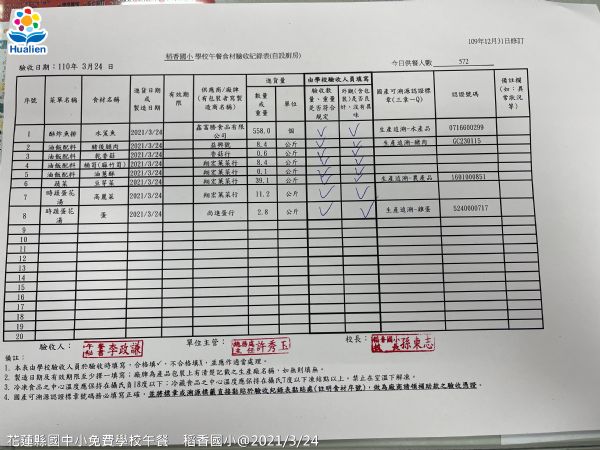 Hualien
109年12月31日修訂
稻香國小 學校午餐食材驗收紀錄表(自設廚房)
驗收日期：110年 3月24 日 今日供餐人數 572
序號 菜單名稱 食材名稱 進貨日期或製造日期 有效期限 供應商/廠牌(有包裝者寫製造商名稱) 進貨量 數量或重量 單位 由學校驗收人員填寫 驗收數量、重量是否符合規定 外觀(含包裝)是否良好，沒有異味 國產可溯源認證標章(三章一Q) 認證號碼 備註欄(如：異常狀況等)
1 酥炸魚排 水鯊魚 2021/3/24 鑫富勝食品有限公司 558.0 個 ✓ ✓ 生產追溯-水產品 0716600299
2 油飯配料 豬後腿肉 2021/3/24 益興號 8.4 公斤 ✓ ✓ 生產追溯-豬肉 GC230115
3 油飯配料 乾香菇 2021/3/24 香菇行 0.6 公斤 ✓ ✓
4 油飯配料 桶筍(麻竹筍) 2021/3/24 翔宏菓菜行 8.4 公斤 ✓ ✓
5 油飯配料 油蔥酥 2021/3/24 翔宏菓菜行 0.1 公斤 ✓ ✓
6 蔬菜 豆芽菜 2021/3/24 翔宏菓菜行 39.1 公斤 ✓ ✓ 生產追溯-農產品 1601000851
7 時蔬蛋花湯 高麗菜 2021/3/24 翔宏菓菜行 11.2 公斤 ✓ ✓
8 時蔬蛋花湯 蛋 2021/3/24 尚進蛋行 2.8 公斤 ✓ ✓ 生產追溯-雞蛋 5240000717
9
10
11
12
13
14
15
16
17
18
19
20
驗收人： 午餐秘書 李政謙 單位主管： 總務處主任 許秀玉 校長： 稻香國小校長 孫東志
備註：
1. 本表由學校驗收人員於驗收時填寫，合格填✓，不合格填X，並應作適當處理。
2. 製造日期及有效期限至少擇一填寫；廠牌為產品包裝上有清楚記載之生產廠名稱，如無則填無。
3. 冷凍食品之中心溫度應保持在攝氏負18度以下；冷藏食品之中心溫度應保持在攝氏7度以下凍結點以上，禁止在室溫下解凍。
4. 國產可溯源認證標章號碼務必填寫正確，並將標章或溯源標籤直接黏貼於驗收紀錄表黏貼處(註明食材序號)，做為廠商請領補助款之驗收憑證。
花蓮縣國中小免費學校午餐 稻香國小@2021/3/24